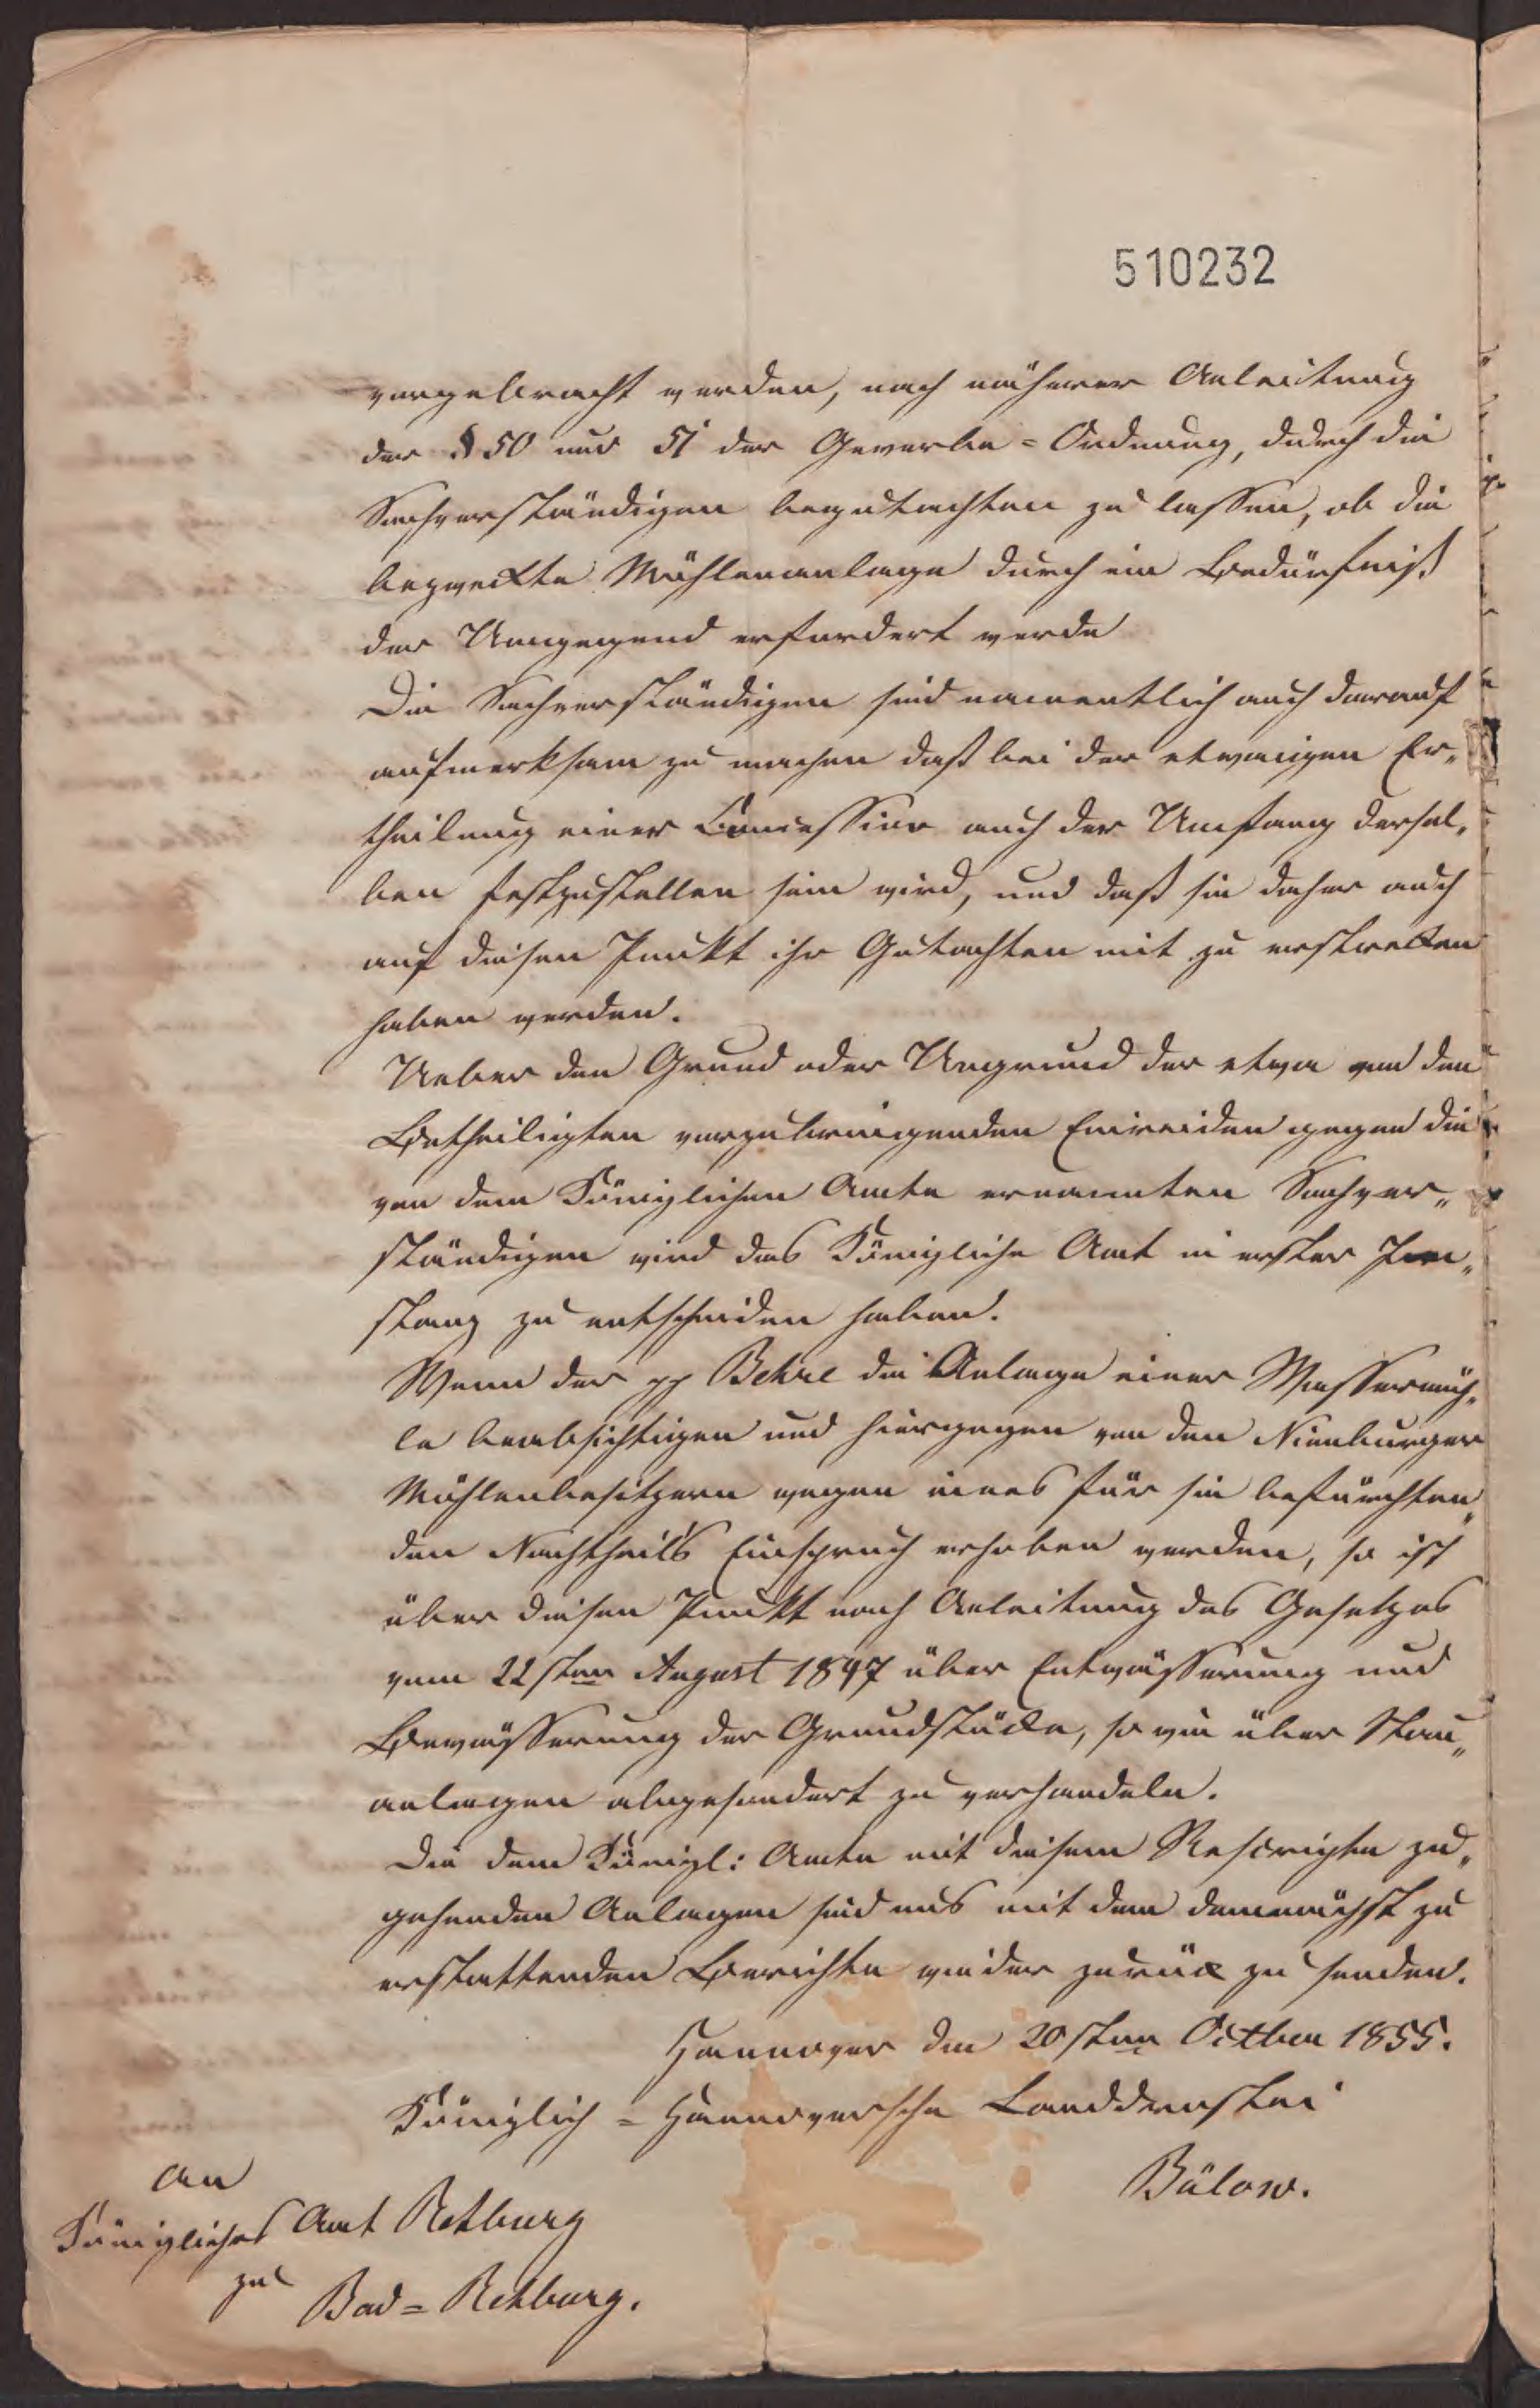 510232
vorgebracht werden, nach näherer Anleitung
der § 50 und 51 der Gewerbe=Ordnung, durch die
Sachverständigen begutachten zu lassen, ob die
bezweckte Mühlenanlage durch ein Bedürfniß
der Umgegend erfordert werde
Die Sachverständigen sind namentlich auch darauf
aufmerksam zu machen daß bei der etwaigen Er„
theilung einer Concession auch der Umfang dersel„
ben festzustellen sein wird, und daß sie daher auch
auf diesen Punkt ihr Gutachten mit zu erstrecken
haben werden.
Ueber den Grund oder Ungrund der etwa von den
Betheiligten vorzubringenden Einreden gegen die
von dem Königlichen Amte ernannten Sachver„
ständigen wird das Königliche Amt in erster In„
stanz zu entscheiden haben.
Wenn der pp Behre die Anlage einer Wassermüh„
le beabsichtigen und hiergegen von den Nienburger
Mühlenbesitzern wegen eines für sie befürchten„
den Nachtheils Einspruch erhoben werden, so ist
über diesen Punkt nach Anleitung des Gesetzes
vom 22sten August 1847 über Entwässerung und
Bewässerung der Grundstücke, so wie über Stau„
anlagen abgesondert zu verhandeln.
Die dem Königl: Amte mit diesem Rescripte zu„
gehenden Anlagen sind uns mit dem demnächst zu
erstattenden Berichte wieder zurück zu senden.
Hannover den 20sten Octber 1855.
Königlich=Hannoversche Landdrostei
Bülow.
An
Königliches Amt Rehburg
zu
Bad=Rehburg.